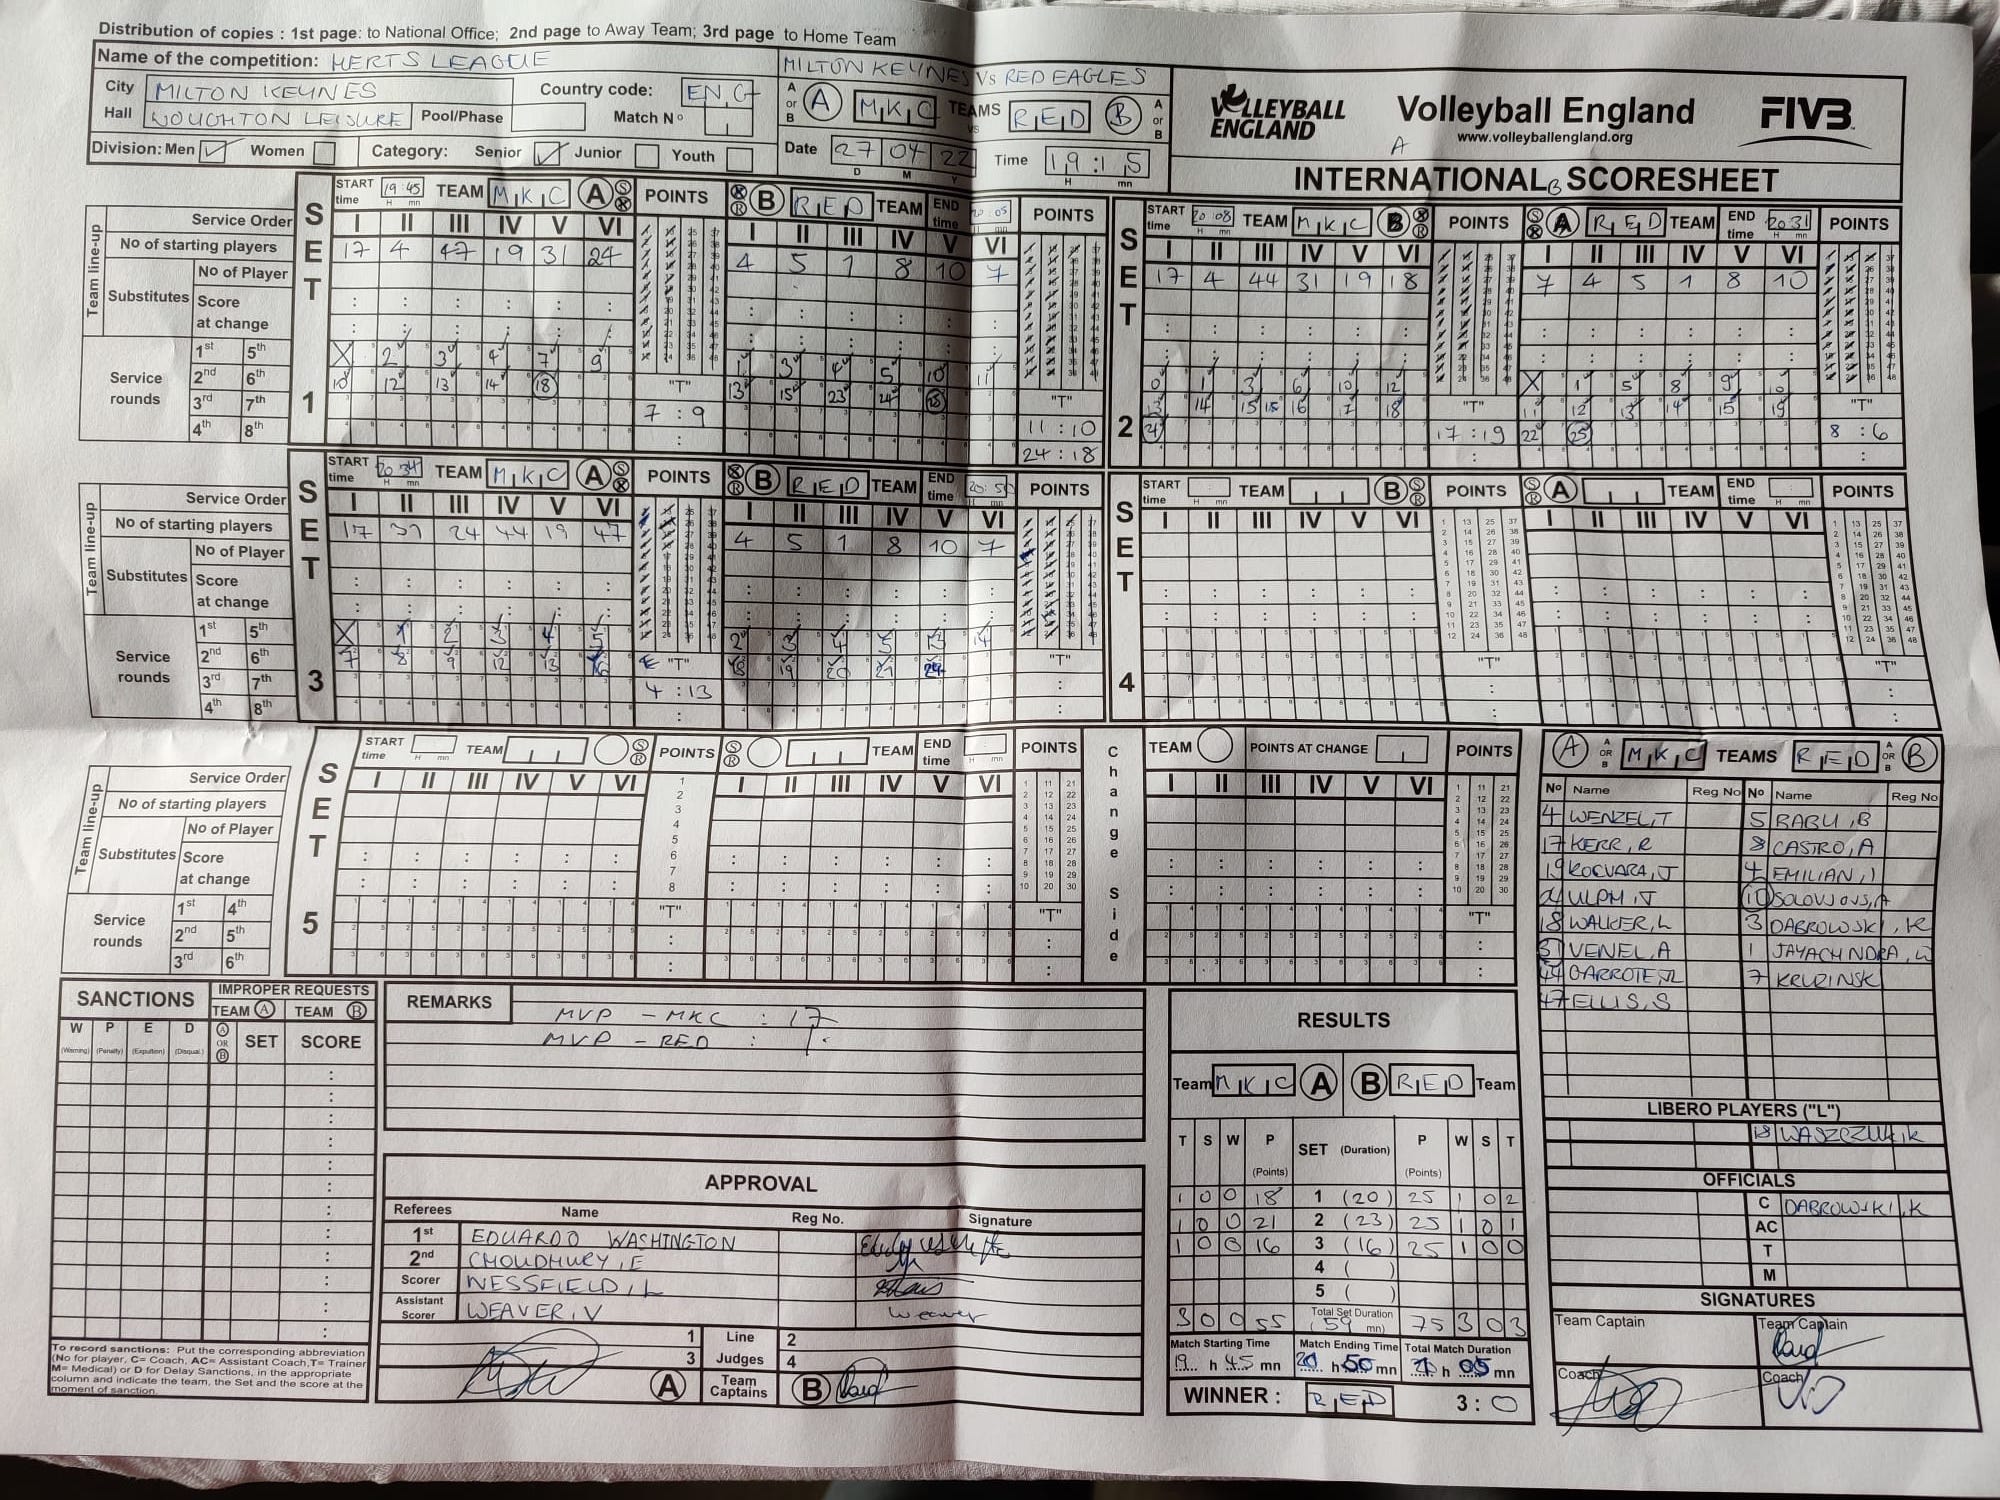 Distribution of copies : 1st page: to National Office; 2nd page to Away Team; 3rd page to Home Team
Name of the competition: HERTS LEAGUE
MILTON KEYNES Vs RED EAGLES
City MILTON KEYNES Country code: ENG
Hall WOUGHTON LEISURE Pool/Phase Match Nº
A or B A MKC TEAMS vs RED B A or B
Division: Men ✓ Women Category: Senior ✓ Junior Youth
Date 27 04 22 Time 19:15
D M Y H mn
VOLLEYBALL ENGLAND
Volleyball England
www.volleyballengland.org
FIVB
A
INTERNATIONAL B SCORESHEET
SET 1
START time 19:45 TEAM MKC A POINTS B RED TEAM END time 20:05 POINTS
Team line-up
Service Order I II III IV V VI I II III IV V VI
No of starting players 17 4 47 19 31 24 4 5 1 8 10 7
Substitutes No of Player
Score at change
Service rounds 1st 5th X 2 3 4 7 9 1 3 4 5 10 11
2nd 6th 10 12 13 14 18 13 15 23 24 25
3rd 7th
4th 8th
"T" 7 : 9
"T" 11 : 10
24 : 18
SET 2
START time 20:08 TEAM MKC B POINTS A RED TEAM END time 20:31 POINTS
I II III IV V VI I II III IV V VI
17 4 44 31 19 18 7 4 5 1 8 10
0 1 3 6 10 12 X 1 5 8 9 10
13 14 15 16 17 18 11 12 13 14 15 19
21 22 25
"T" 17 : 19
"T" 8 : 6
SET 3
START time 20:34 TEAM MKC A POINTS B RED TEAM END time 20:50 POINTS
Team line-up
Service Order I II III IV V VI I II III IV V VI
No of starting players 17 31 24 44 19 47 4 5 1 8 10 7
Substitutes No of Player
Score at change
Service rounds 1st 5th X 1 2 3 4 5 2 3 4 5 13 14
2nd 6th 7 8 9 12 13 16 18 19 20 21 24
3rd 7th
4th 8th
"T" 4 : 13
"T"
SET 4
START time TEAM B POINTS A TEAM END time POINTS
I II III IV V VI I II III IV V VI
"T"
"T"
SET 5
START time TEAM POINTS TEAM END time POINTS
Team line-up
Service Order I II III IV V VI I II III IV V VI
No of starting players
Substitutes No of Player
Score at change
Service rounds 1st 4th
2nd 5th
3rd 6th
"T"
"T"
Change Side
TEAM POINTS AT CHANGE POINTS
I II III IV V VI
"T"
A A OR B MKC TEAMS RED A OR B B
Nº Name Reg No Nº Name Reg No
4 WENZEL,T 5 BABU,B
17 KERR, R 8 CASTRO, A
19 KOCVARA, J 4 EMILIAN, I
24 ULPM, J 10 SOLOVJOVS,A
18 WALKER, L 3 DABROWSKI, K
31 VENEL, A 1 JAYACHNDRA,
44 GARROTE, 7 KRUZINSK
47 ELLIS, S
LIBERO PLAYERS ("L")
18 WASZCZUK, K
OFFICIALS
C DABROWSKI, K
AC
T
M
SIGNATURES
Team Captain Team Captain
Coach Coach
SANCTIONS
IMPROPER REQUESTS
TEAM A TEAM B
W (Warning) P (Penalty) E (Expultion) D (Disqual.) A OR B SET SCORE
To record sanctions: Put the corresponding abbreviation
(No for player, C= Coach, AC= Assistant Coach,T= Trainer
M= Medical) or D for Delay Sanctions, in the appropriate
column and indicate the team, the Set and the score at the
moment of sanction.
REMARKS
MVP - MKC : 17
MVP - RED : 1.
APPROVAL
Referees Name Reg No. Signature
1st EDUARDO WASHINGTON
2nd CHOUDHURY, E
Scorer NESSFIELD, L
Assistant Scorer WEAVER, V Weaver
1 3 Line Judges 2 4
A Team Captains B
RESULTS
Team MKC A B RED Team
T S W P (Points) SET (Duration) P (Points) W S T
1 0 0 18 1 (20) 25 1 0 2
1 0 0 21 2 (23) 25 1 0 1
1 0 0 16 3 (16) 25 1 0 0
4 ( )
5 ( )
3 0 0 55 Total Set Duration (59 mn) 75 3 0 3
Match Starting Time Match Ending Time Total Match Duration
19 h 45 mn 20 h 50 mn 1 h 05 mn
WINNER : RED 3 : 0